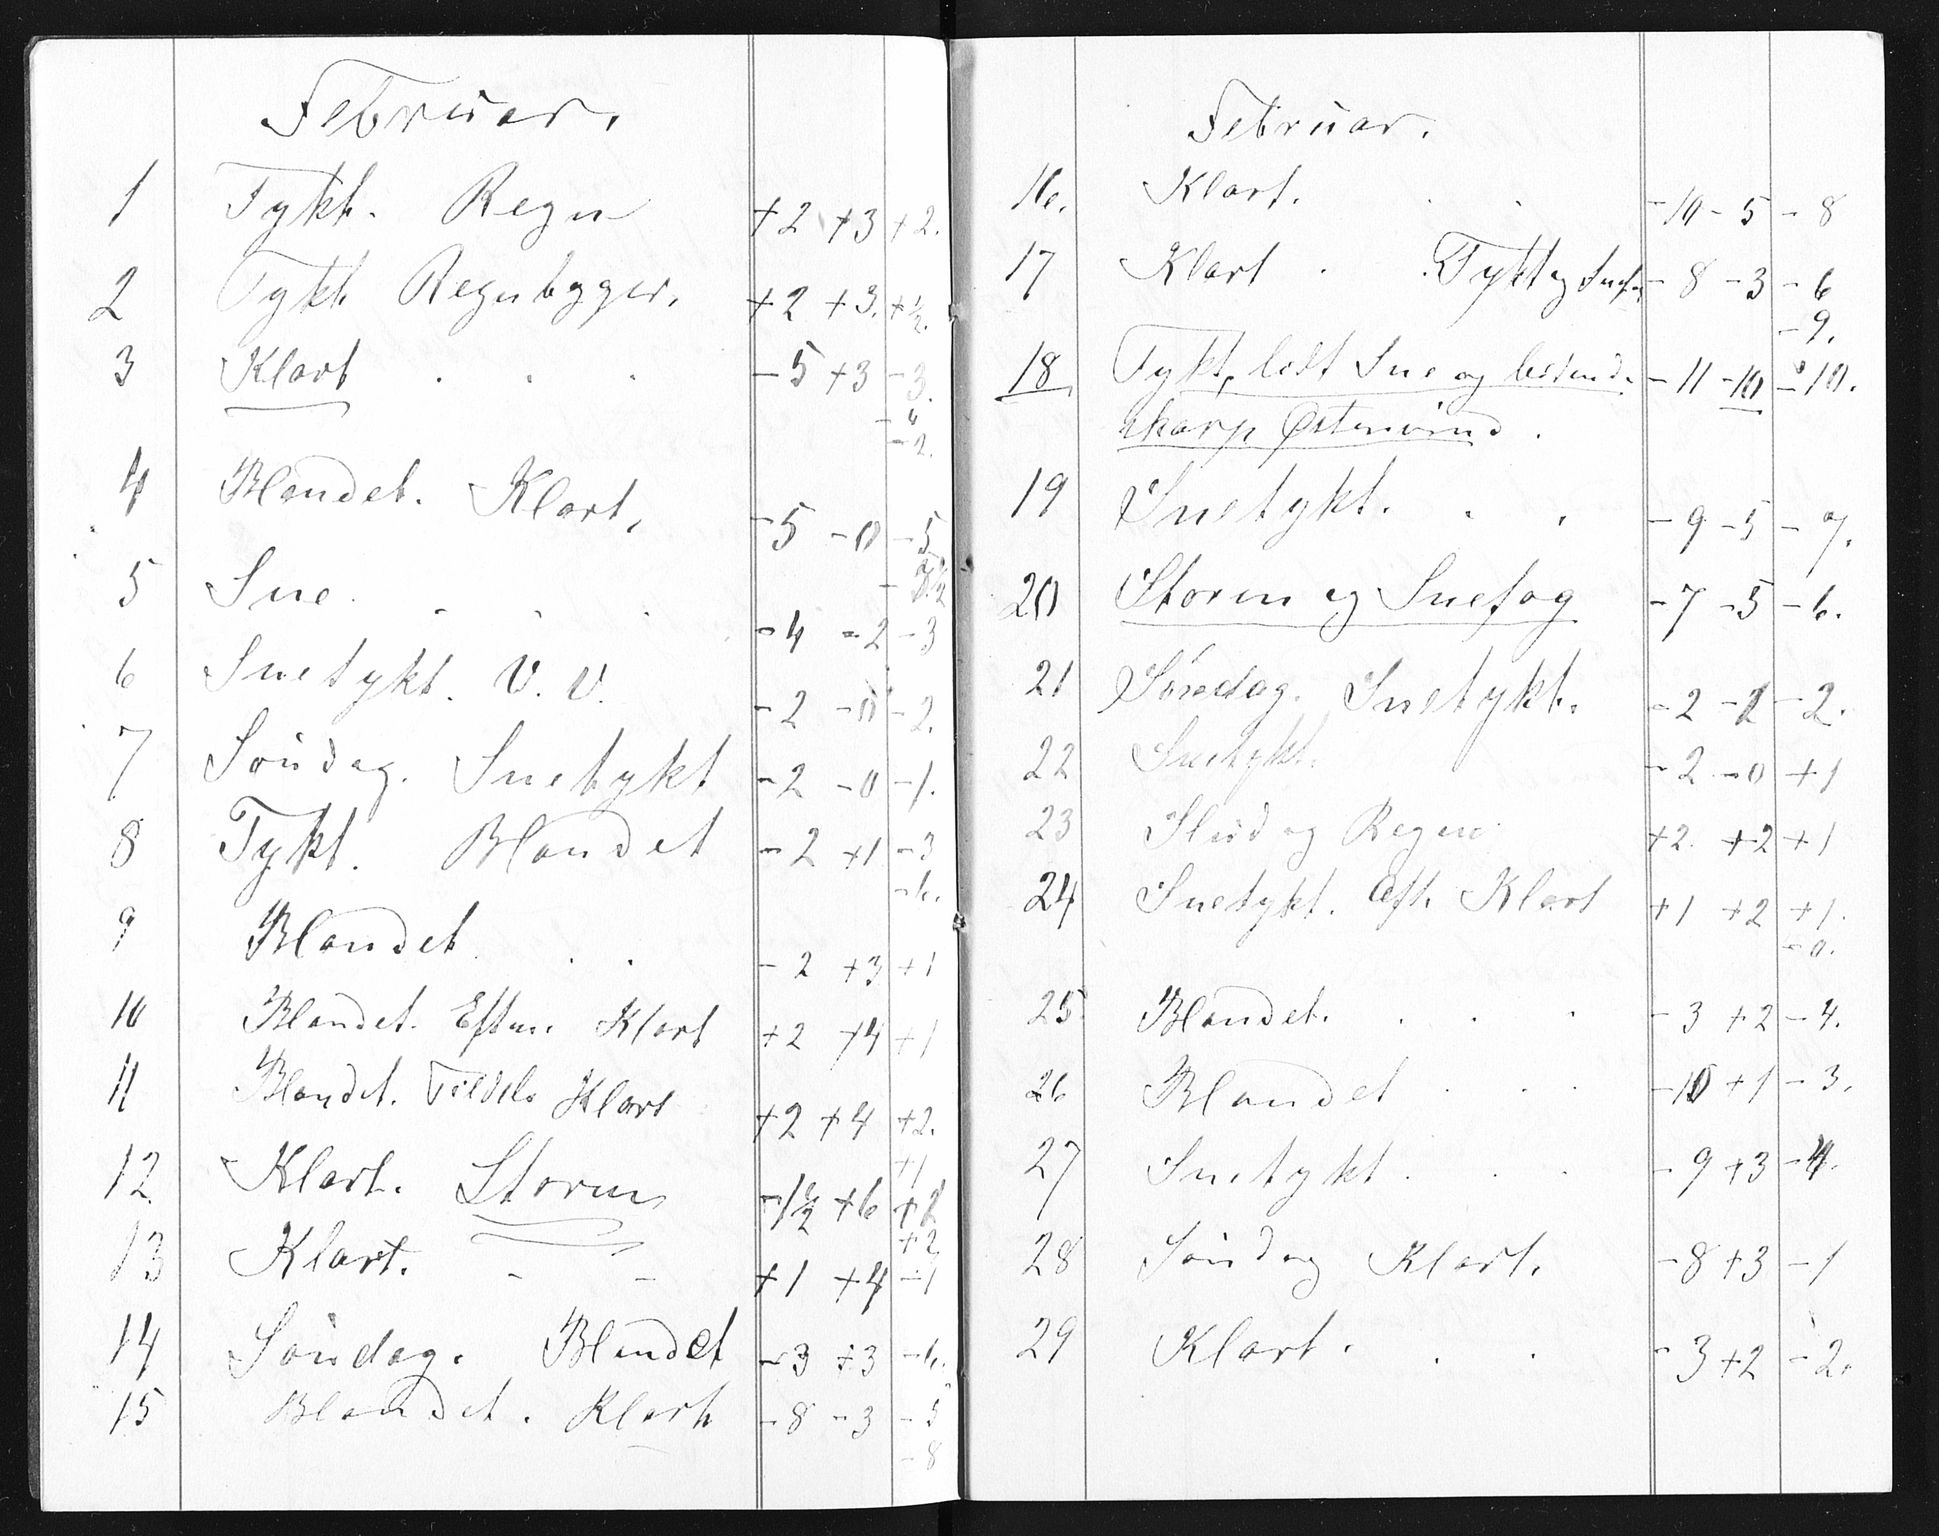 Februar.
1 Tykt. Regn +2 +3 +2.
2 Tykt Regnbyger. +2 +3. +½.
3 Klart . . . -5 +3 -3.
-4
-2.
4 Blandet. Klart. -5 -0 -5
5 Sne . . . -4 -2 -3
6 Snetykt. V. V. -2 -0 -2.
7 Søndag. Snetykt -2 -0 -1.
8 Tykt. Blandet -2 +1 -3
-6.
9 Blandet . . -2 +3 +1
10 Blandet. Efterm. Klart +2 +4 +1
11 Blandet. Tildels Klart +2 +4 +2.
+1
12 Klart. Storm -1½ +6 +2
+2
13 Klart. - - +1 +4 -1
14 Søndag. Blandet -3 +3 -6.
15 Blandet. Klart -8 -3 -5
-8
Februar.
16. Klart. . . -10 -5 -8
17 Klart . . Tykt og Snefog -8 -3 -6
-9.
18 Tykt, lidt Sne og -11 -10 -10.
skarp Østenvind .
19 Snetykt. . . -9 -5 -7.
20 Storm og Snefog -7 -5 -6.
21 Søndag. Snetykt. -2 -2 -2.
22 Snetykt. -2 -0 +1
23 Slud og Regn +2. +2 +1
24 Snetykt. Eft. Klart +1 +2 +1.
-0.
25. Blandet. . . . -3 +2 -4.
26 Blandet . . . -10 +1 -3.
27 Snetykt . . . -9 +3 -4.
28 Søndag Klart. -8 +3 -1
29 Klart. . . -3 +2 -2.